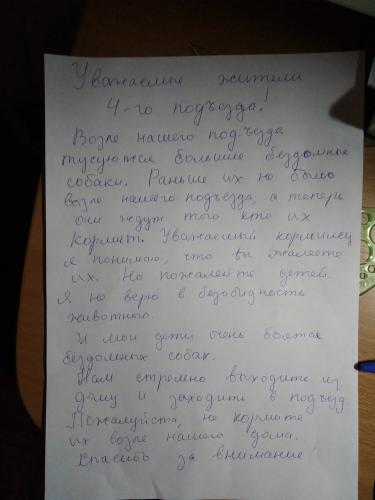 Уважаемые жители
4-го подъезда!
Возле нашего подъезда
тусуются большие бездомные
собаки. Раньше их не было
возле нашего подъезда, а теперь
они ждут того кто их
кормит. Уважаемый кормилец
я понимаю, что вы жалеете
их. Но пожалейте детей.
Я не верю в безобидность
животного.
И мои дети очень боятся
бездомных собак.
Нам стремно выходить из
дому и заходить в подъезд.
Пожалуйста, не кормите
их возле нашего дома.
Спасибо за внимание!